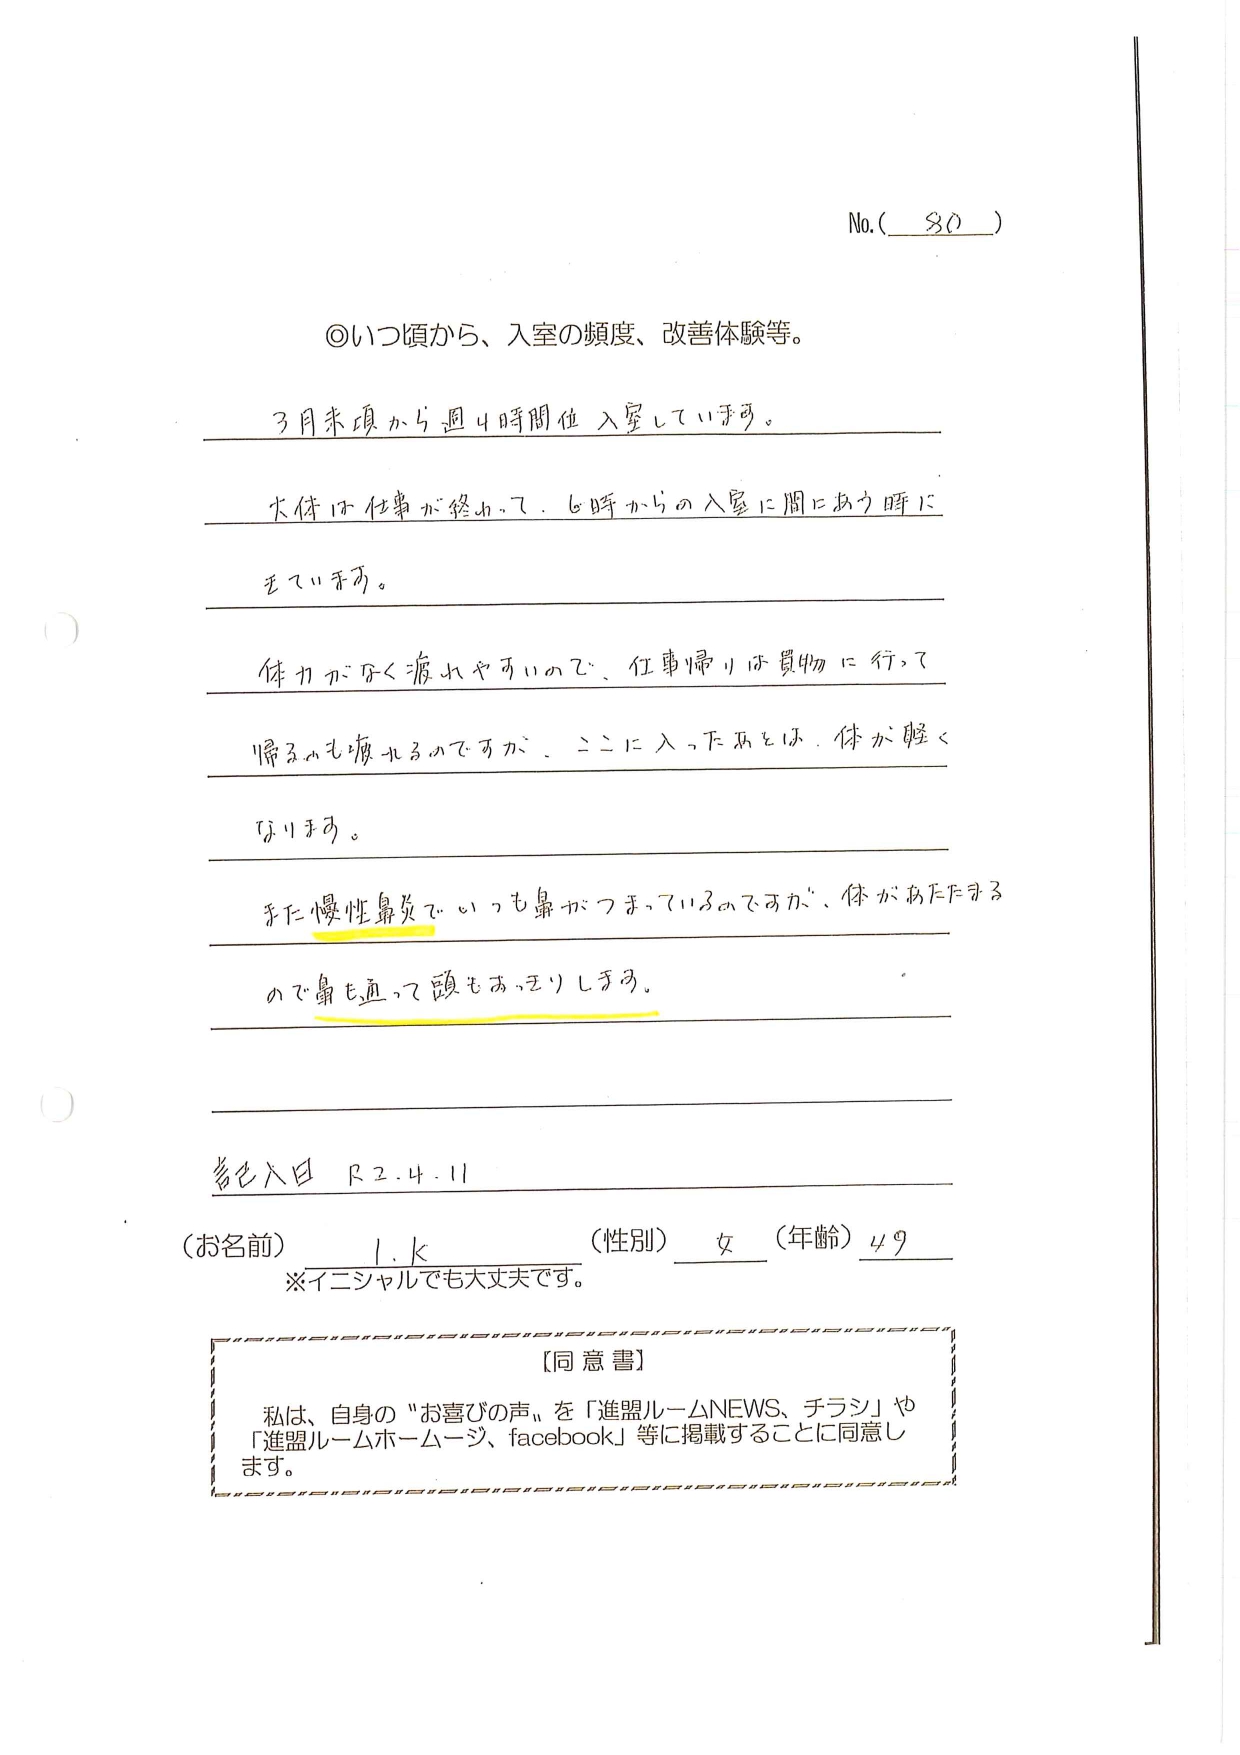 No.( 80 )
◎いつ頃から、入室の頻度、改善体験等。
3月末頃から週4時間位入室しています。
大体は仕事が終わって、6時からの入室に間にあう時に
きています。
体力がなく疲れやすいので、仕事帰りは買物に行って
帰るのも疲れるのですが、ここに入ったあとは、体が軽く
なります。
また慢性鼻炎でいつも鼻がつまっているのですが、体があたたまる
ので鼻も通って頭もすっきりします。
記入日 R2.4.11
(お名前) I.K (性別) 女 (年齢) 49
※イニシャルでも大丈夫です。
【同意書】
私は、自身の〝お喜びの声〟を「進盟ルームNEWS、チラシ」や
「進盟ルームホームージ、facebook」等に掲載することに同意し
ます。